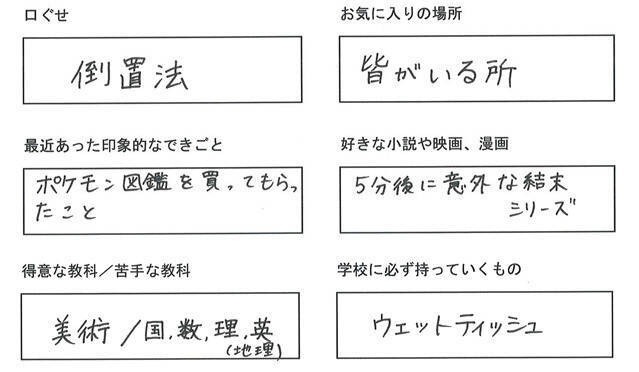 口ぐせ
倒置法
お気に入りの場所
皆がいる所
最近あった印象的なできごと
ポケモン図鑑を買ってもらっ
たこと
好きな小説や映画、漫画
5分後に意外な結末
シリーズ
得意な教科／苦手な教科
美術/国,数,理,英
(地理)
学校に必ず持っていくもの
ウェットティッシュ